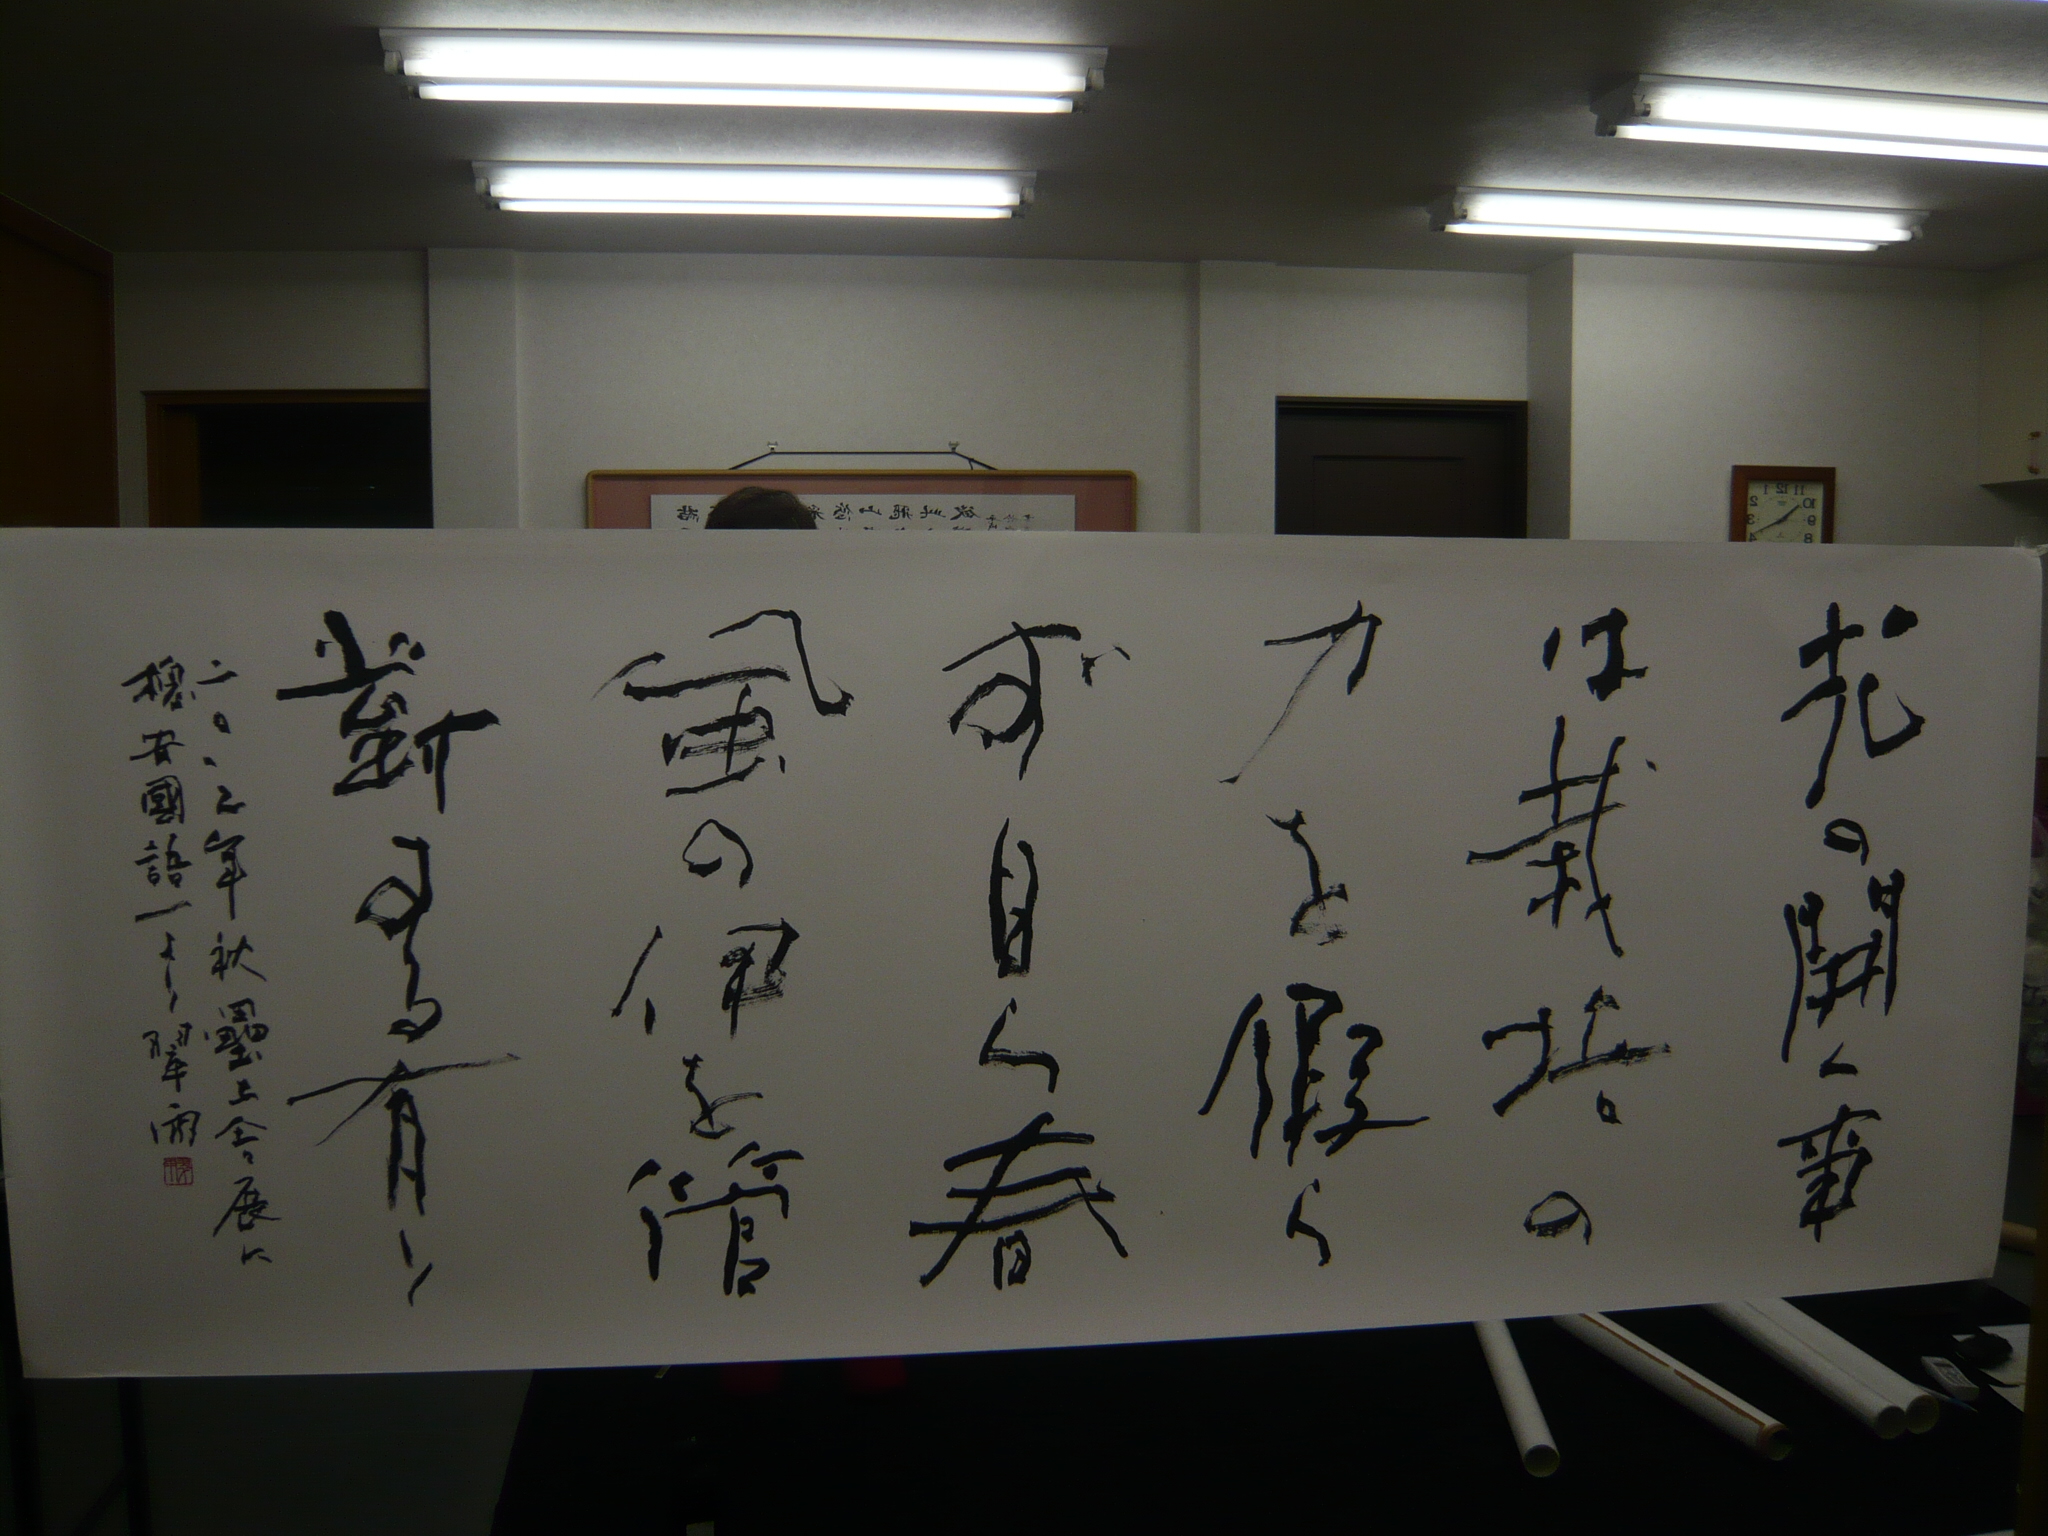 花の開く事
は栽培の
力を假ら
ず自ら春
風の伊を管
對する有り
二〇〇二年秋墨土会展に
槐安國語一より